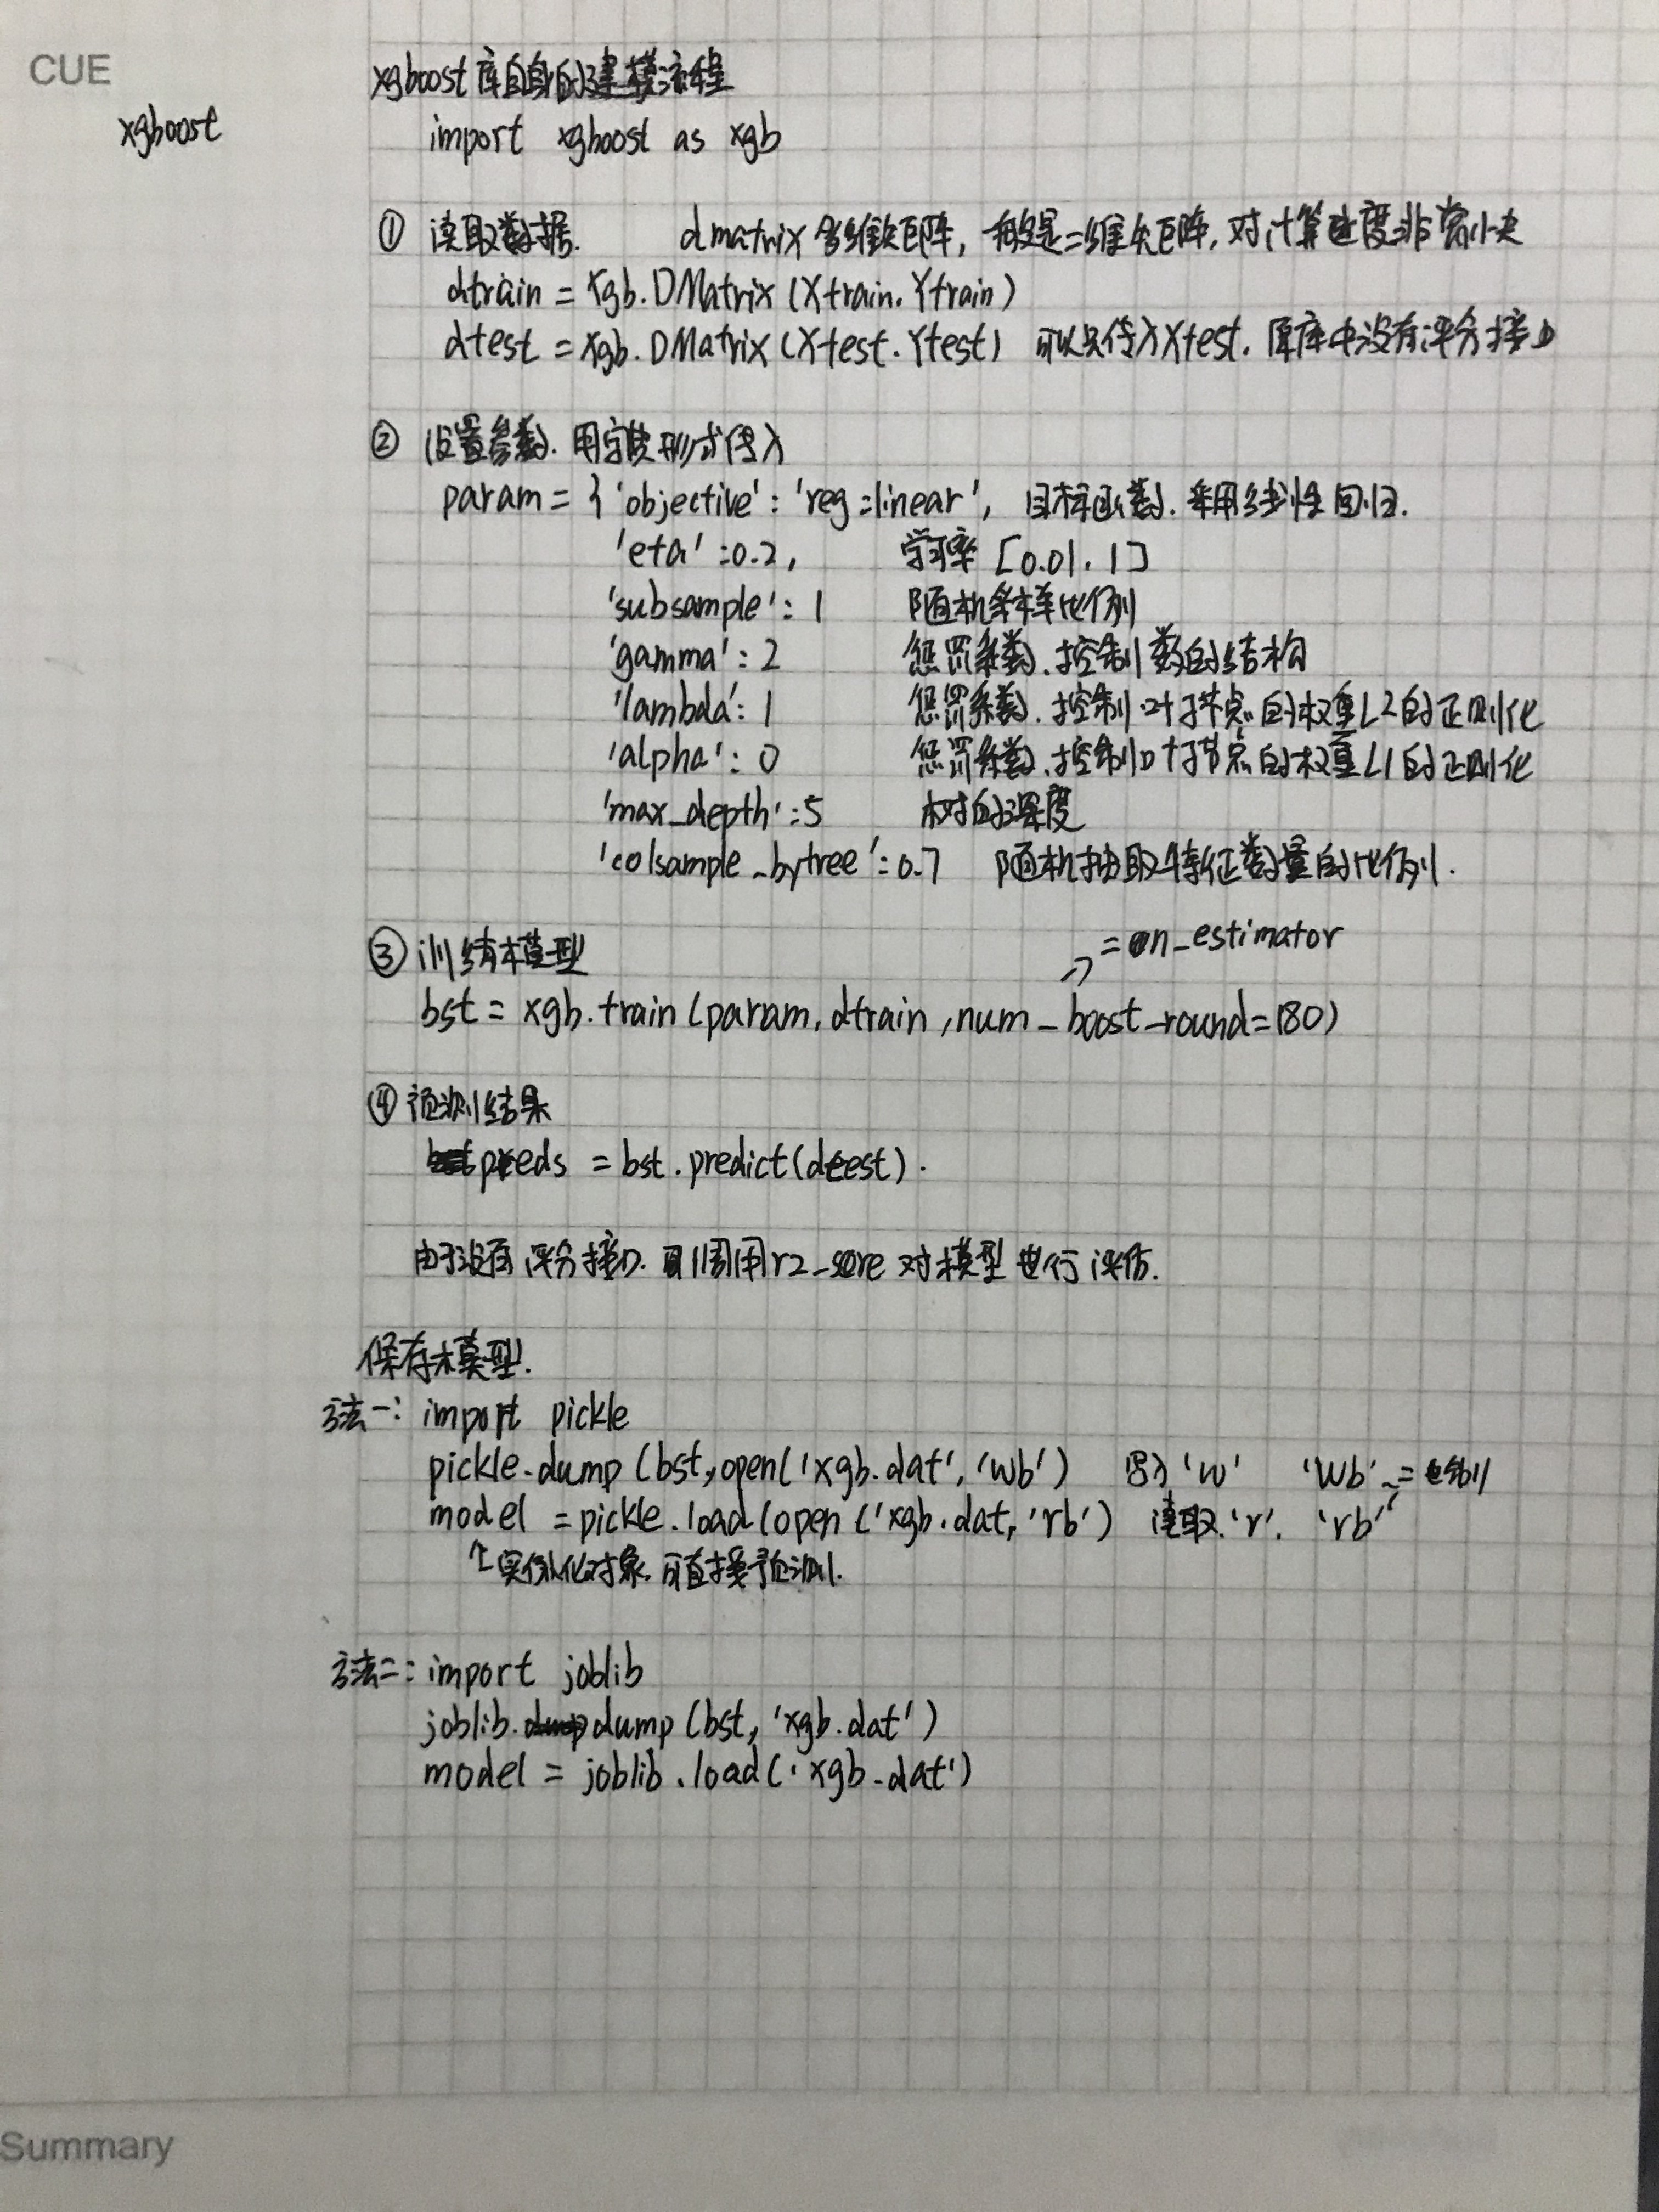 CUE
xgboost
xgboost库自身的建模流程
import xgboost as xgb
① 读取数据. dmatrix 多维矩阵, 一般是二维矩阵, 对计算速度非常快
dtrain = xgb.DMatrix (Xtrain, Ytrain)
dtest = xgb.DMatrix (Xtest. Ytest) 可以只传入Xtest. 原库中没有评分接口
② 设置参数. 用字典形式传入
param = { 'objective': 'reg:linear', 目标函数. 采用线性回归.
'eta' :0.2, 学习率 [0.01, 1]
'subsample': 1 随机采样比例
'gamma': 2 惩罚系数. 控制数的结构
'lambda': 1 惩罚系数. 控制叶子节点的权重L2的正则化
'alpha': 0 惩罚系数. 控制叶子节点的权重L1的正则化
'max_depth':5 树的深度
'colsample_bytree': 0.7 随机抽取特征数量的比例.
③ 训练模型 = n_estimator
bst = xgb.train (param, dtrain, num_boost_round=180)
④ 预测结果
preds = bst.predict(dtest).
由于没有评分接口. 可调用r2_score 对模型进行评估.
保存模型.
方法一: import pickle
pickle.dump (bst, open('xgb.dat', 'wb') 写入 'w' 'wb' 二进制
model = pickle.load (open ('xgb.dat, 'rb') 读取 'r'. 'rb'
↑ 实例化对象. 可直接预测.
方法二: import joblib
joblib.dump (bst, 'xgb.dat')
model = joblib.load('xgb.dat')
Summary